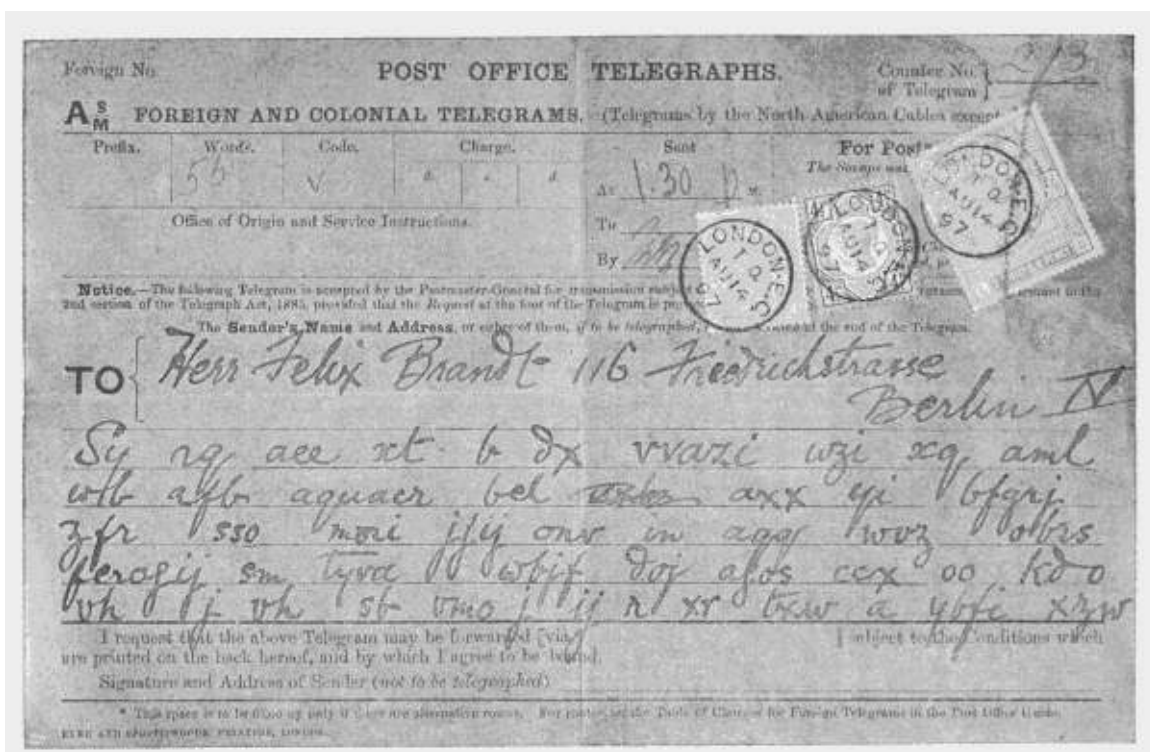 Foreign No.
POST OFFICE TELEGRAPHS.
Counter No. of Telegram }
FOREIGN AND COLONIAL TELEGRAMS. (Telegrams by the North American Cables except
Prefix. Words. Code. Charge. Sent For Post
V
At 1.30
Office of Origin and Service Instructions.
To
By
LONDON.E.C
T Q
AU 14
97
LONDON.E.C
T Q
AU 14
97
LONDON.E.C
T Q
AU 14
97
Notice.—The following Telegram is accepted by the Postmaster-General for transmission subject
2nd section of the Telegraph Act, 1885, provided that the Request at the foot of the Telegram is
The Sender's Name and Address, or either of them, if to be telegraphed, at the end of the Telegram.
TO { Herr Felix Brandt 116 Friedrichstrasse
Berlin N
Sy rg aee xt b dx vvazi wzi xq aml
wtb afb aquaer bel axx yi bfgrj
zfr sso mori jfij onv in agg wvz obrs
ferogij sm tyva wbjf doj afos ccx oo kdo
vh j vh sb vmo j ij r xr txw a ybfi xrzw
I request that the above Telegram may be forwarded [via ] subject to the Conditions which
are printed on the back hereof, and by which I agree to be bound.
Signature and Address of Sender (not to be telegraphed)
* This space is to be filled up only if there are alternative routes. For routes, see the Table of Charges for Foreign Telegrams in the Post Office Guide.